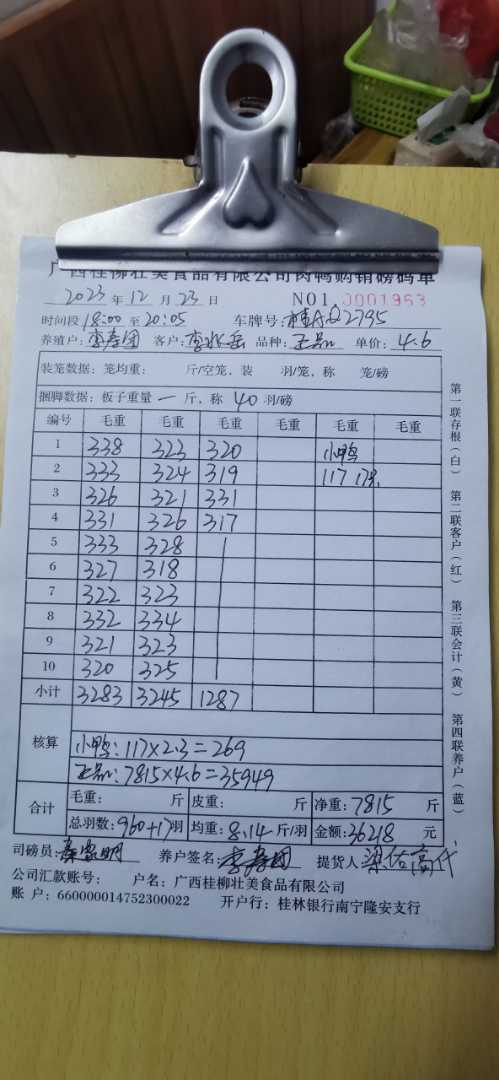 广西桂柳壮美食品有限公司肉鸭购销磅码单
2023 年 12 月 23 日 NO1. 0001953
时间段 18:00 至 20:05 车牌号: 桂AQ2795
养殖户: 李寿团 客户: 品种: 正品 单价: 4.6
装笼数据: 笼均重: 斤/空笼, 装 羽/笼, 称 笼/磅
捆脚数据: 板子重量 一 斤, 称 40 羽/磅
编号 毛重 毛重 毛重 毛重 毛重 毛重
1 338 323 320 小鸭
2 333 324 319 117 17只
3 326 321 331
4 331 326 317
5 333 328
6 327 318
7 322 323
8 332 334
9 321 323
10 320 325
小计 3283 3245 1287
核算
小鸭: 117×2.3=269
正品: 7815×4.6=35949
合计 毛重: 斤 皮重: 斤 净重: 7815 斤
总羽数: 960+17 羽 均重: 8.14 斤/羽 金额: 36218 元
司磅员: 养户签名: 李寿团 提货人
公司汇款账号: 户名: 广西桂柳壮美食品有限公司
账 户: 660000014752300022 开户行: 桂林银行南宁隆安支行
第一联存根(白) 第二联客户(红) 第三联会计(黄) 第四联养户(蓝)